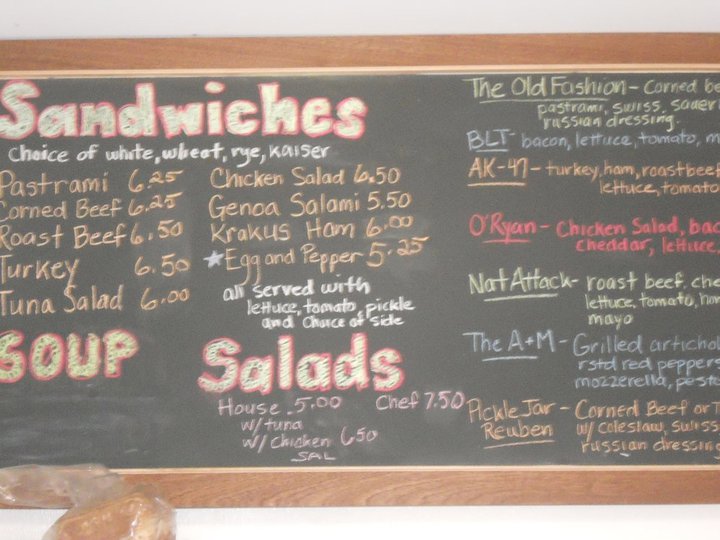 Sandwiches
Choice of white, wheat, rye, kaiser
Pastrami 6.25
Corned Beef 6.25
Roast Beef 6.50
Turkey 6.50
Tuna Salad 6.00
Chicken Salad 6.50
Genoa Salami 5.50
Krakus Ham 6.00
Egg and Pepper 5.25
all served with
lettuce, tomato, pickle
and choice of side
SOUP
Salads
House 5.00 Chef 7.50
w/ tuna
w/ chicken 650
SAL
The Old Fashion - Corned
pastrami, swiss,
russian dressing.
BLT - bacon, lettuce, tomato,
AK-47 - turkey, ham, roastbeef
lettuce, tomato
O'Ryan - Chicken Salad,
cheddar,
Nat Attack - roast beef,
lettuce, tomato,
mayo
The A+M - Grilled
rstd red peppers
mozzerella,
Pickle Jar - Corned Beef or
Reuben w/ coleslaw, swiss
russian dressing